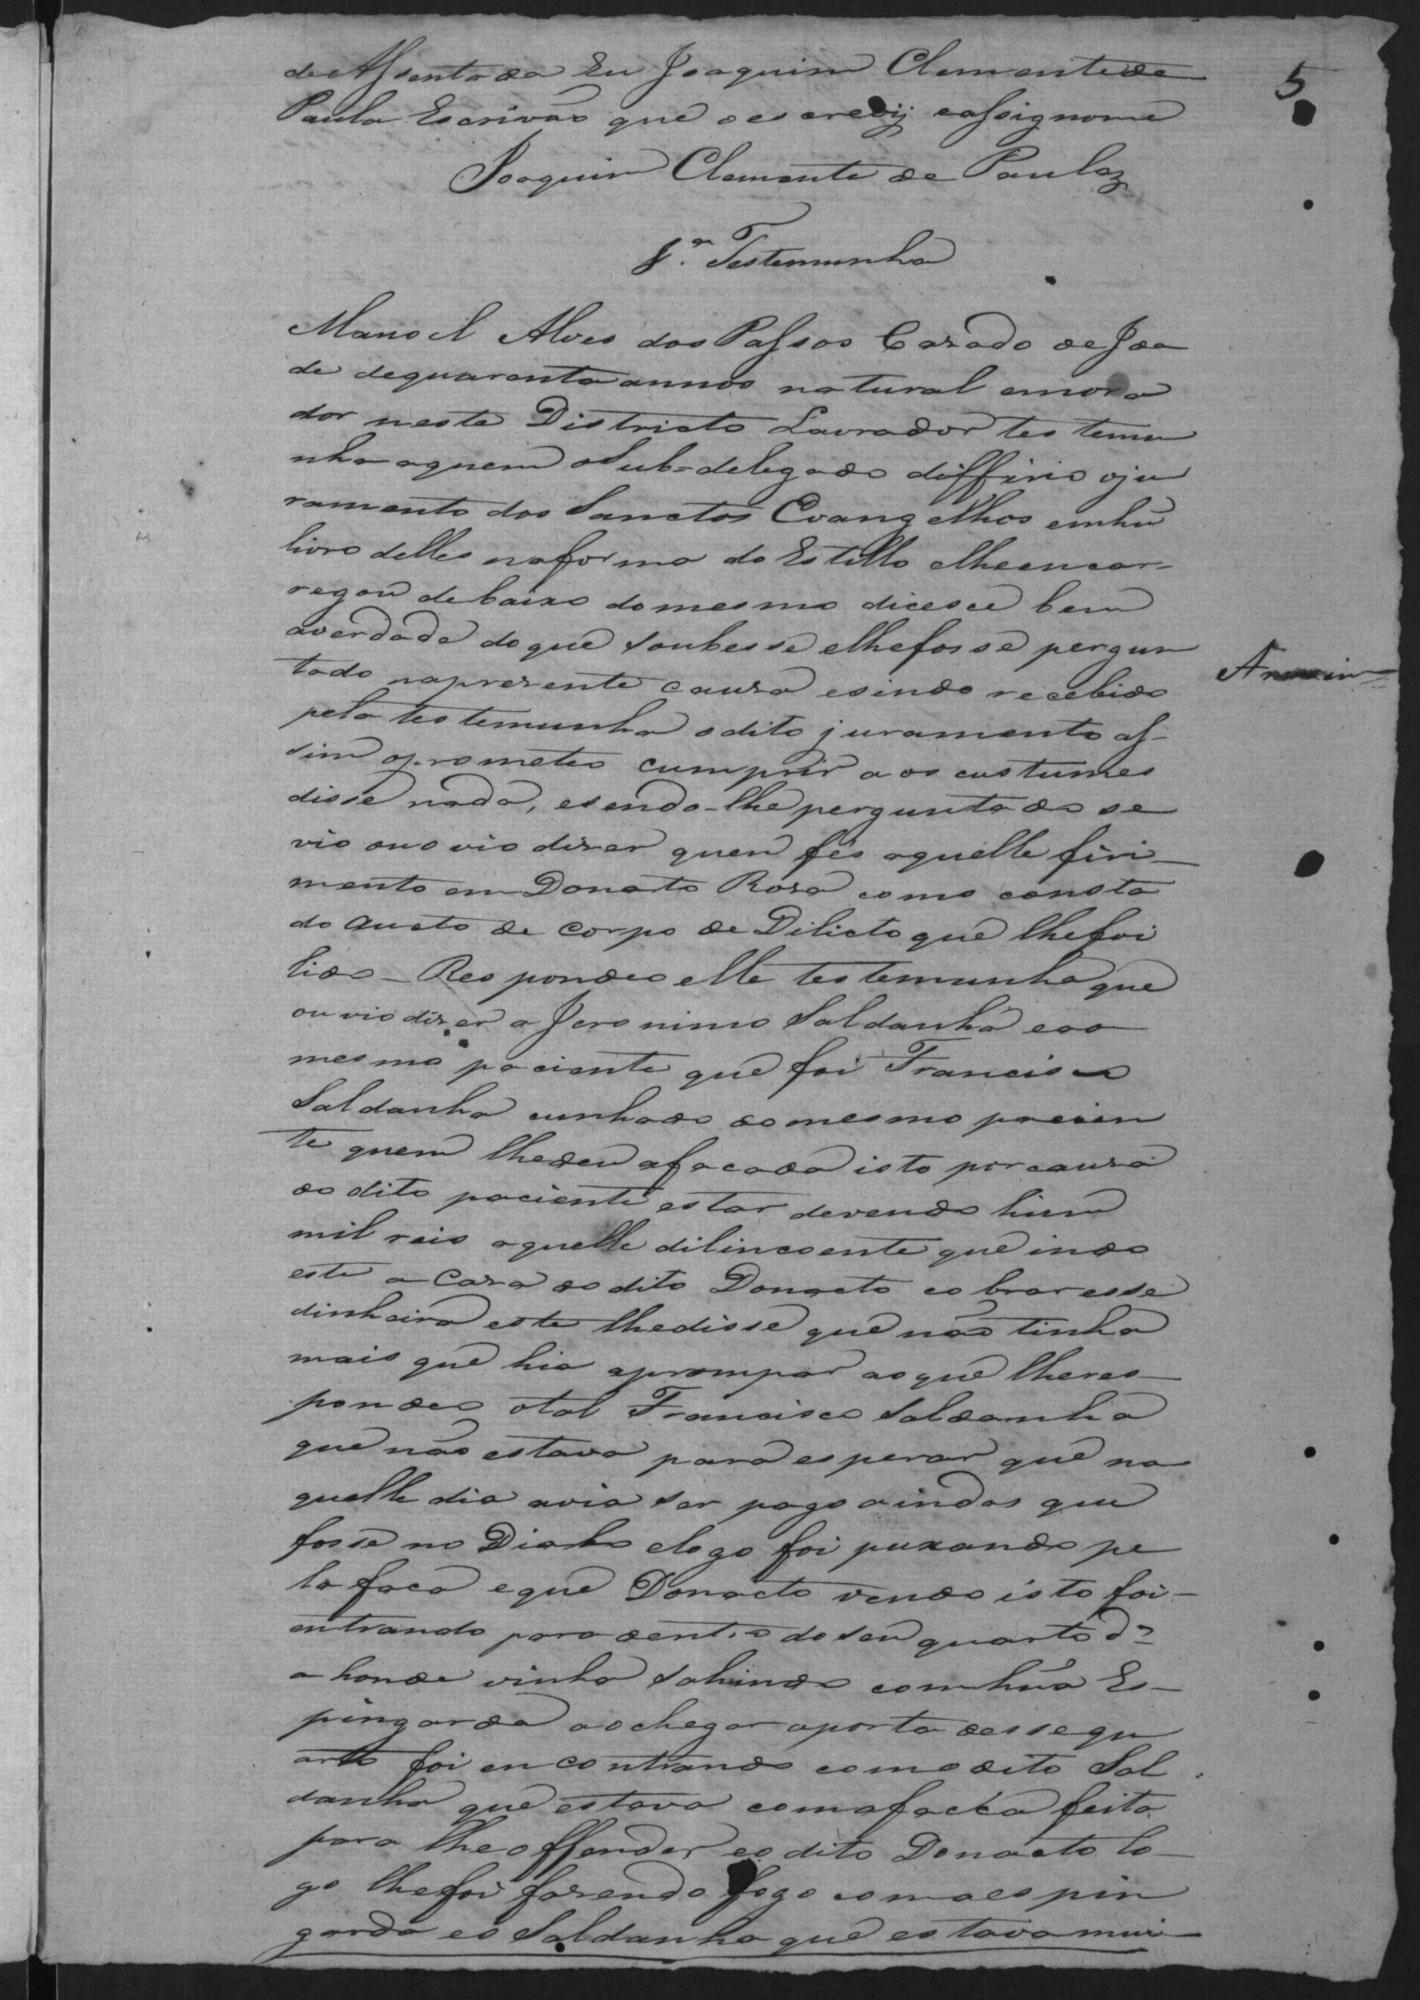 de Assentada Eu Joaquim Clemente de
Paula Escrivão que o escrevij e assignome
Joaquim Clemente de Paula
5
1.ª Testemunha
Manoel Alves dos Passos Cazado de Ida
de de quarenta annos natural e mora
dor neste Districto Lavrador testemu
nha a quem o Sub-delegado differio o ju
ramento dos Sanctos Evangelhos em hũ
livro delles na forma do Estillo e lhe encar-
regou de baixo do mesmo dicesce bem
a verdade do que soubesse e lhe fosse pergun
tado na prezente cauza e sindo recebido
pela testemunha o dito juramento as-
sim o prometeo cumprir a os custumes
disse nada, e sendo-lhe perguntado se
vio ou ovio dizer quem fes aquelle firi-
mento em Donato Roza como consta
do aucto de corpo de Dilicto que lhe foi
lido - Respondeo elle testemunha que
ouvio dizer a Jeronimo Saldanha e ao
mesmo paciente que foi Francisco
Saldanha cunhado do mesmo pacien
te quem lhe deu a facada isto por cauza
do dito paciente estar devendo hum
mil reis aquelle dilincoente que indo
este a Caza do dito Donacto cobrar esse
dinheiro este lhe disse que não tinha
mais que hia aprompar ao que lhe res-
pondeo o tal Francisco Saldanha
que não estava para esperar que na
quelle dia avia ser pago aindas que
fosse no Diabo e logo foi puxando pe
la faca e que Donacto vendo isto foi-
entrando para dentro do seu quarto d'
a honde vinha sahindo com hũa Es-
pingarda ao chegar a porta desse qu
arto foi encontrando com o dito Sal
danha que estava com a facca feita
para lhe offender e o dito Donacto lo-
go lhe foi fazendo fogo com a espin
garda e o Saldanha que estava mui-